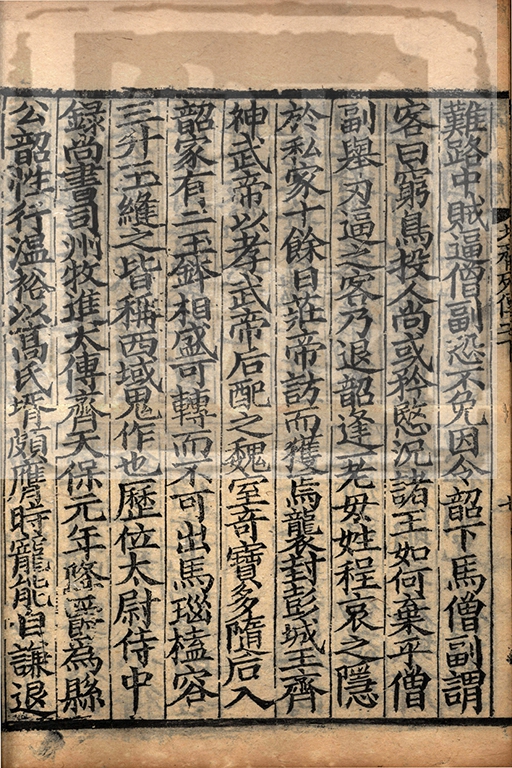 難路中賊逼僧副恐不免因令韶下馬僧副謂
客曰窮鳥投人尚或矜愍況諸王如何棄乎僧
副舉刃逼之客乃退韶逢一老毋姓程哀之隱
於私家十餘日莊帝訪而獲焉襲封彭城王齊
神武帝以孝武帝后配之魏室竒寶多隨后入
韶家有二玉鉢相盛可轉而不可出馬瑙榼容
三升玉縫之皆稱西域鬼作也歷位太尉侍中
錄尚書司州牧進太傅齊天保元年降爵為縣
公韶性行温裕以髙氏壻頗膺時寵能自謙退